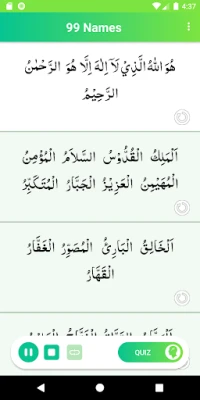 4:37
99 Names
هُوَ اللهُ الَّذِيْ لَآ اِلٰهَ اِلَّا هُوَ الرَّحْمٰنُ
الرَّحِيْمُ
اَلْمَلِكُ الْقُدُّوْسُ السَّلَامُ الْمُؤْمِنُ
الْمُهَيْمِنُ الْعَزِيْزُ الْجَبَّارُ الْمُتَكَبِّرُ
اَلْخَالِقُ الْبَارِئُ الْمُصَوِّرُ الْغَفَّارُ
الْقَهَّارُ
QUIZ